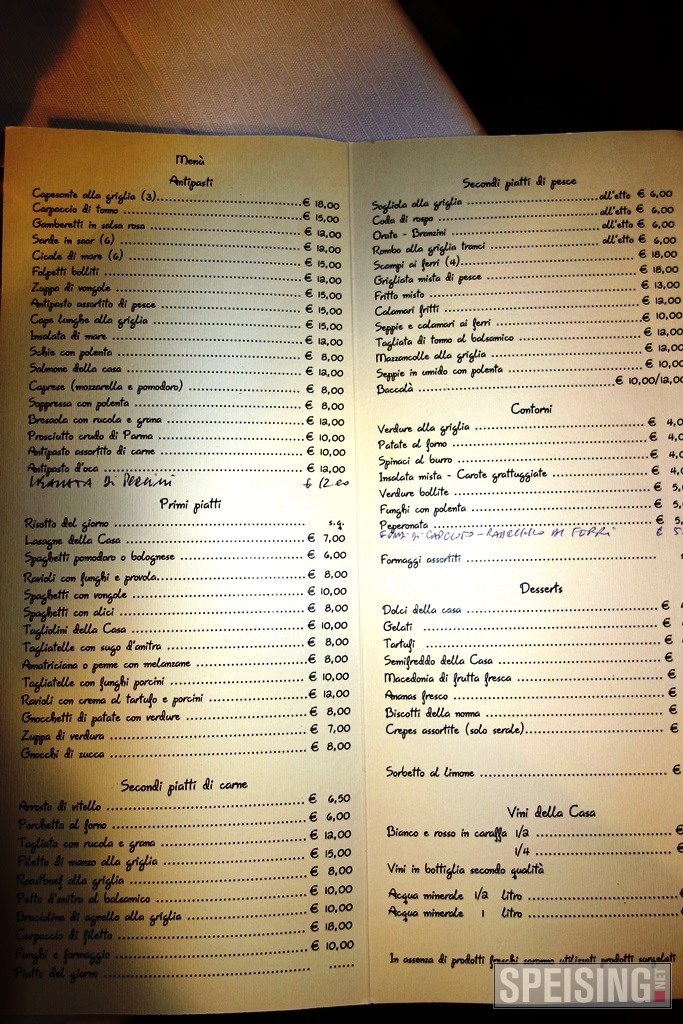 Menù
Antipasti
Capesante alla griglia (3) € 18,00
Carpaccio di tonno € 15,00
Gamberetti in salsa rosa € 12,00
Sarde in saor (6) € 12,00
Cicale di mare (6) € 15,00
Folpetti bolliti € 12,00
Zuppa di vongole € 15,00
Antipasto assortito di pesce € 15,00
Cape lunghe alla griglia € 15,00
Insalata di mare € 12,00
Schie con polenta € 8,00
Salmone della casa € 12,00
Caprese (mozzarella e pomodoro) € 8,00
Soppressa con polenta € 8,00
Bresaola con rucola e grana € 12,00
Prosciutto crudo di Parma € 10,00
Antipasto assortito di carne € 10,00
Antipasto d'oca € 12,00
DI € 12,00
Primi piatti
Risotto del giorno s.q.
Lasagne della Casa € 7,00
Spaghetti pomodoro o bolognese € 6,00
Ravioli con funghi e provola € 8,00
Spaghetti con vongole € 10,00
Spaghetti con alici € 8,00
Tagliolini della Casa € 10,00
Tagliatelle con sugo d'anitra € 8,00
Amatriciana o penne con melanzane € 8,00
Tagliatelle con funghi porcini € 10,00
Ravioli con crema al tartufo e porcini € 12,00
Gnocchetti di patate con verdure € 8,00
Zuppa di verdura € 7,00
Gnocchi di zucca € 8,00
Secondi piatti di carne
Arrosto di vitello € 6,50
Porchetta al forno € 6,00
Tagliata con rucola e grana € 12,00
Filetto di manzo alla griglia € 15,00
Roastbeef alla griglia € 8,00
Petto d'anitra al balsamico € 10,00
Bracioline di agnello alla griglia € 10,00
Carpaccio di filetto € 18,00
Funghi e formaggio € 10,00
Piatto del giorno
Secondi piatti di pesce
Sogliola alla griglia all'etto € 6,00
Coda di rospo all'etto € 6,00
Orate - Branzini all'etto € 6,00
Rombo alla griglia tranci all'etto € 6,00
Scampi ai ferri (4) € 18,00
Grigliata mista di pesce € 18,00
Fritto misto € 13,00
Calamari fritti € 12,00
Seppie e calamari ai ferri € 10,00
Tagliata di tonno al balsamico € 12,00
Mazzancolle alla griglia € 12,00
Seppie in umido con polenta € 10,00
Baccalà € 10,00/12,00
Contorni
Verdure alla griglia € 4,0
Patate al forno € 4,0
Spinaci al burro € 4,0
Insalata mista - Carote grattuggiate € 4,0
Verdure bollite € 5,
Funghi con polenta € 5,
Peperonata € 5,
FONDI DI CARCIOFO - RADICCHIO AI FERRI € 5
Formaggi assortiti
Desserts
Dolci della casa €
Gelati €
Tartufi €
Semifreddo della Casa €
Macedonia di frutta fresca €
Ananas fresco €
Biscotti della nonna €
Crepes assortite (solo serale) €
Sorbetto al limone €
Vini della Casa
Bianco e rosso in caraffa 1/2 €
1/4 €
Vini in bottiglia secondo qualità
Acqua minerale 1/2 litro €
Acqua minerale 1 litro €
In assenza di prodotti freschi saranno utilizzati prodotti surgelati
SPEISING.NET